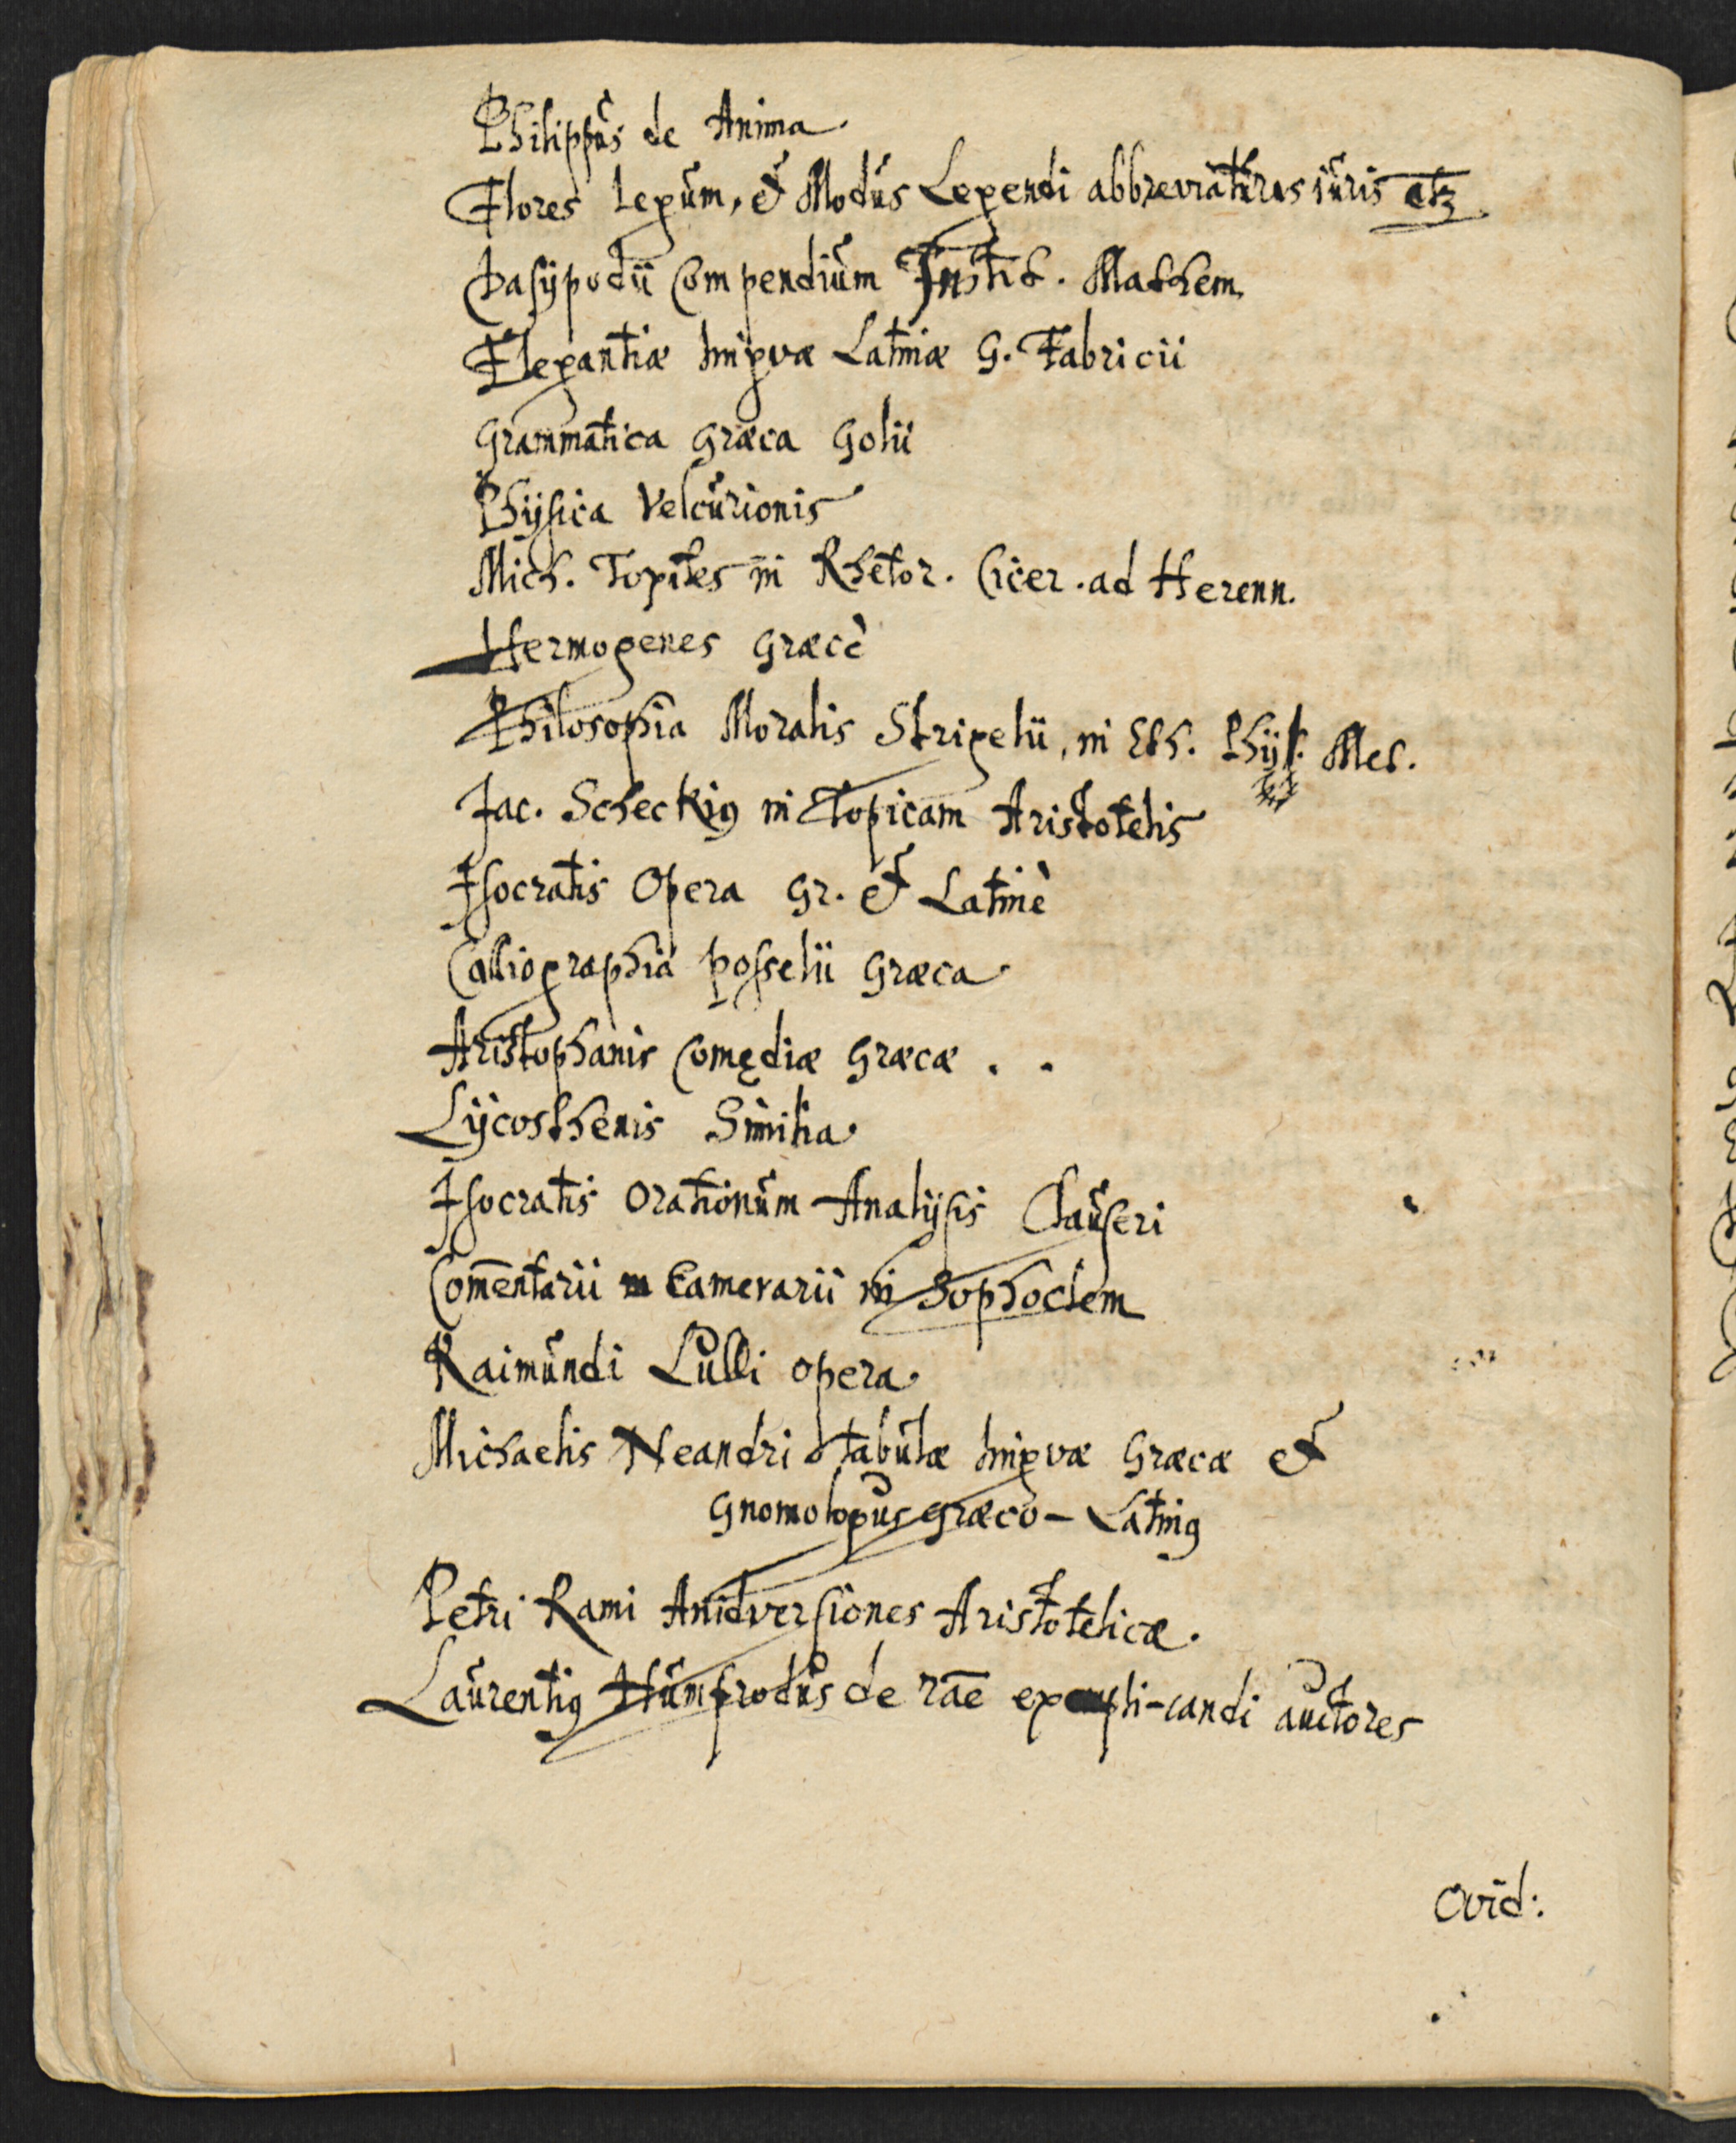 Philippus de Anima
Flores Legum, & Modus Legendi abbreviaturas iuris etz
Dasÿpodii Compendium Instit. Mathem.
Elegantiæ linguæ Latinæ G. Fabricii
Grammatica Græca Golii
Phÿsica Velcurionis
Mich. Toxites in Rhetor. Cicer. ad Herenn.
Hermogenes Græcè
Philosophia Moralis Strigelii, in Eth. Phÿs. Met.
Jac. Scheckiꝰ in Topicam Aristotelis
Isocratis Opera Gr. & Latinè
Calliographia posselii Græca
Aristophanis Comędiæ Græcæ . .
Lÿcosthenis Similia
Isocratis Orationum Analÿsis Clauseri
Com̄entarii Camerarii in Sophoclem
Raimundi Lulli opera
Michaelis Neandri tabulæ linguæ Græcæ &
Gnomologus græco-Latinꝰ
Petri Rami Anidversiones Aristotelicæ.
Laurentiꝰ Humfrodus de rāe expli-candi auctores
Ovid: